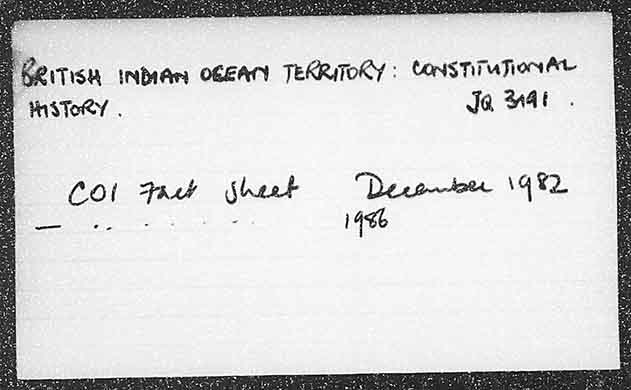 BRITISH INDIAN OCEAN TERRITORY: CONSTITUTIONAL
HISTORY. JQ 3191.
COI Fact Sheet December 1982
— .. . . . . . 1986